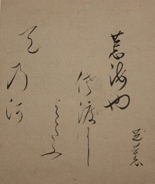 荒海や
佐渡に
よこたふ
天乃河
芭蕉